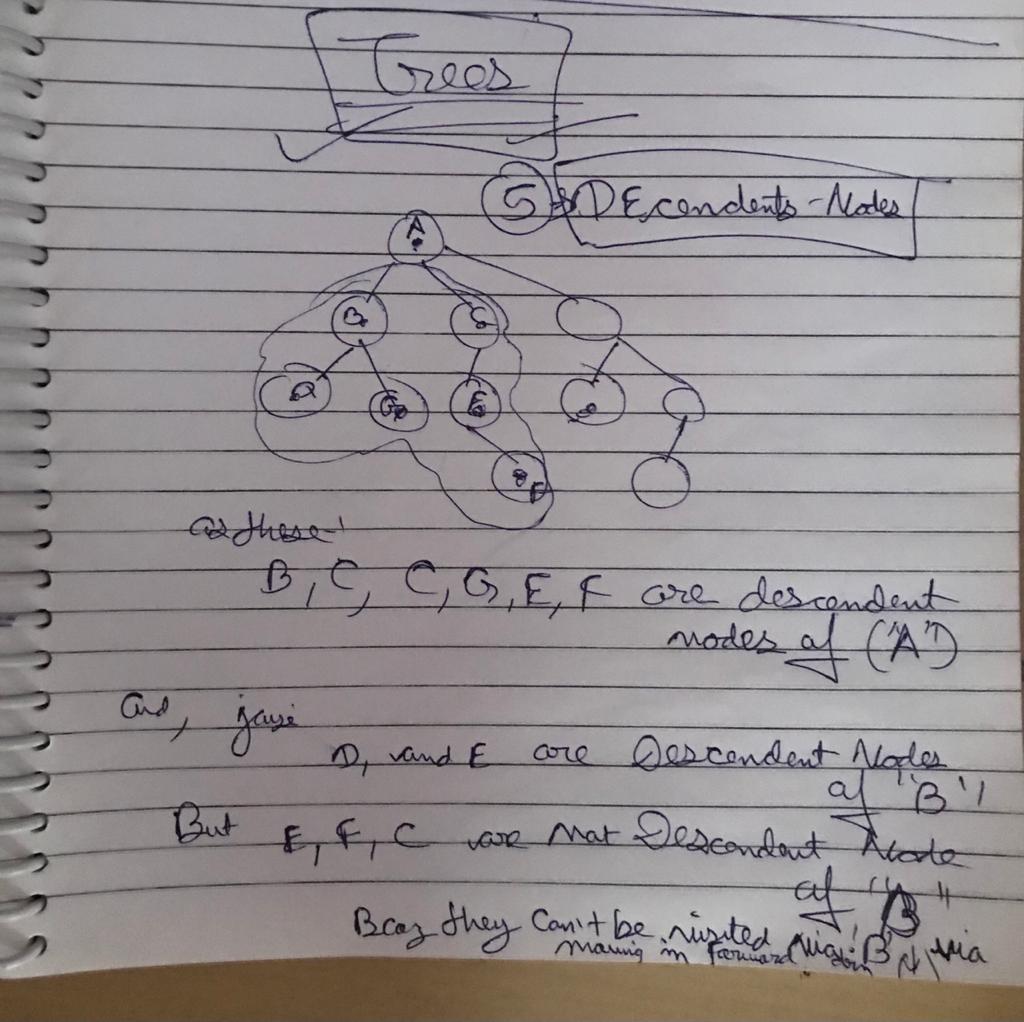 Trees
5 DEcendents-Nodes
A
B C
D G E
F
as these
B, C, C, G, E, F are descendent
nodes of ("A")
And, jaise
D, and E are Descendent Nodes
of "B"
But E, F, C are Not Descendent Node
of "B"
Bcoz they Can't be visited via B via
moving in forward